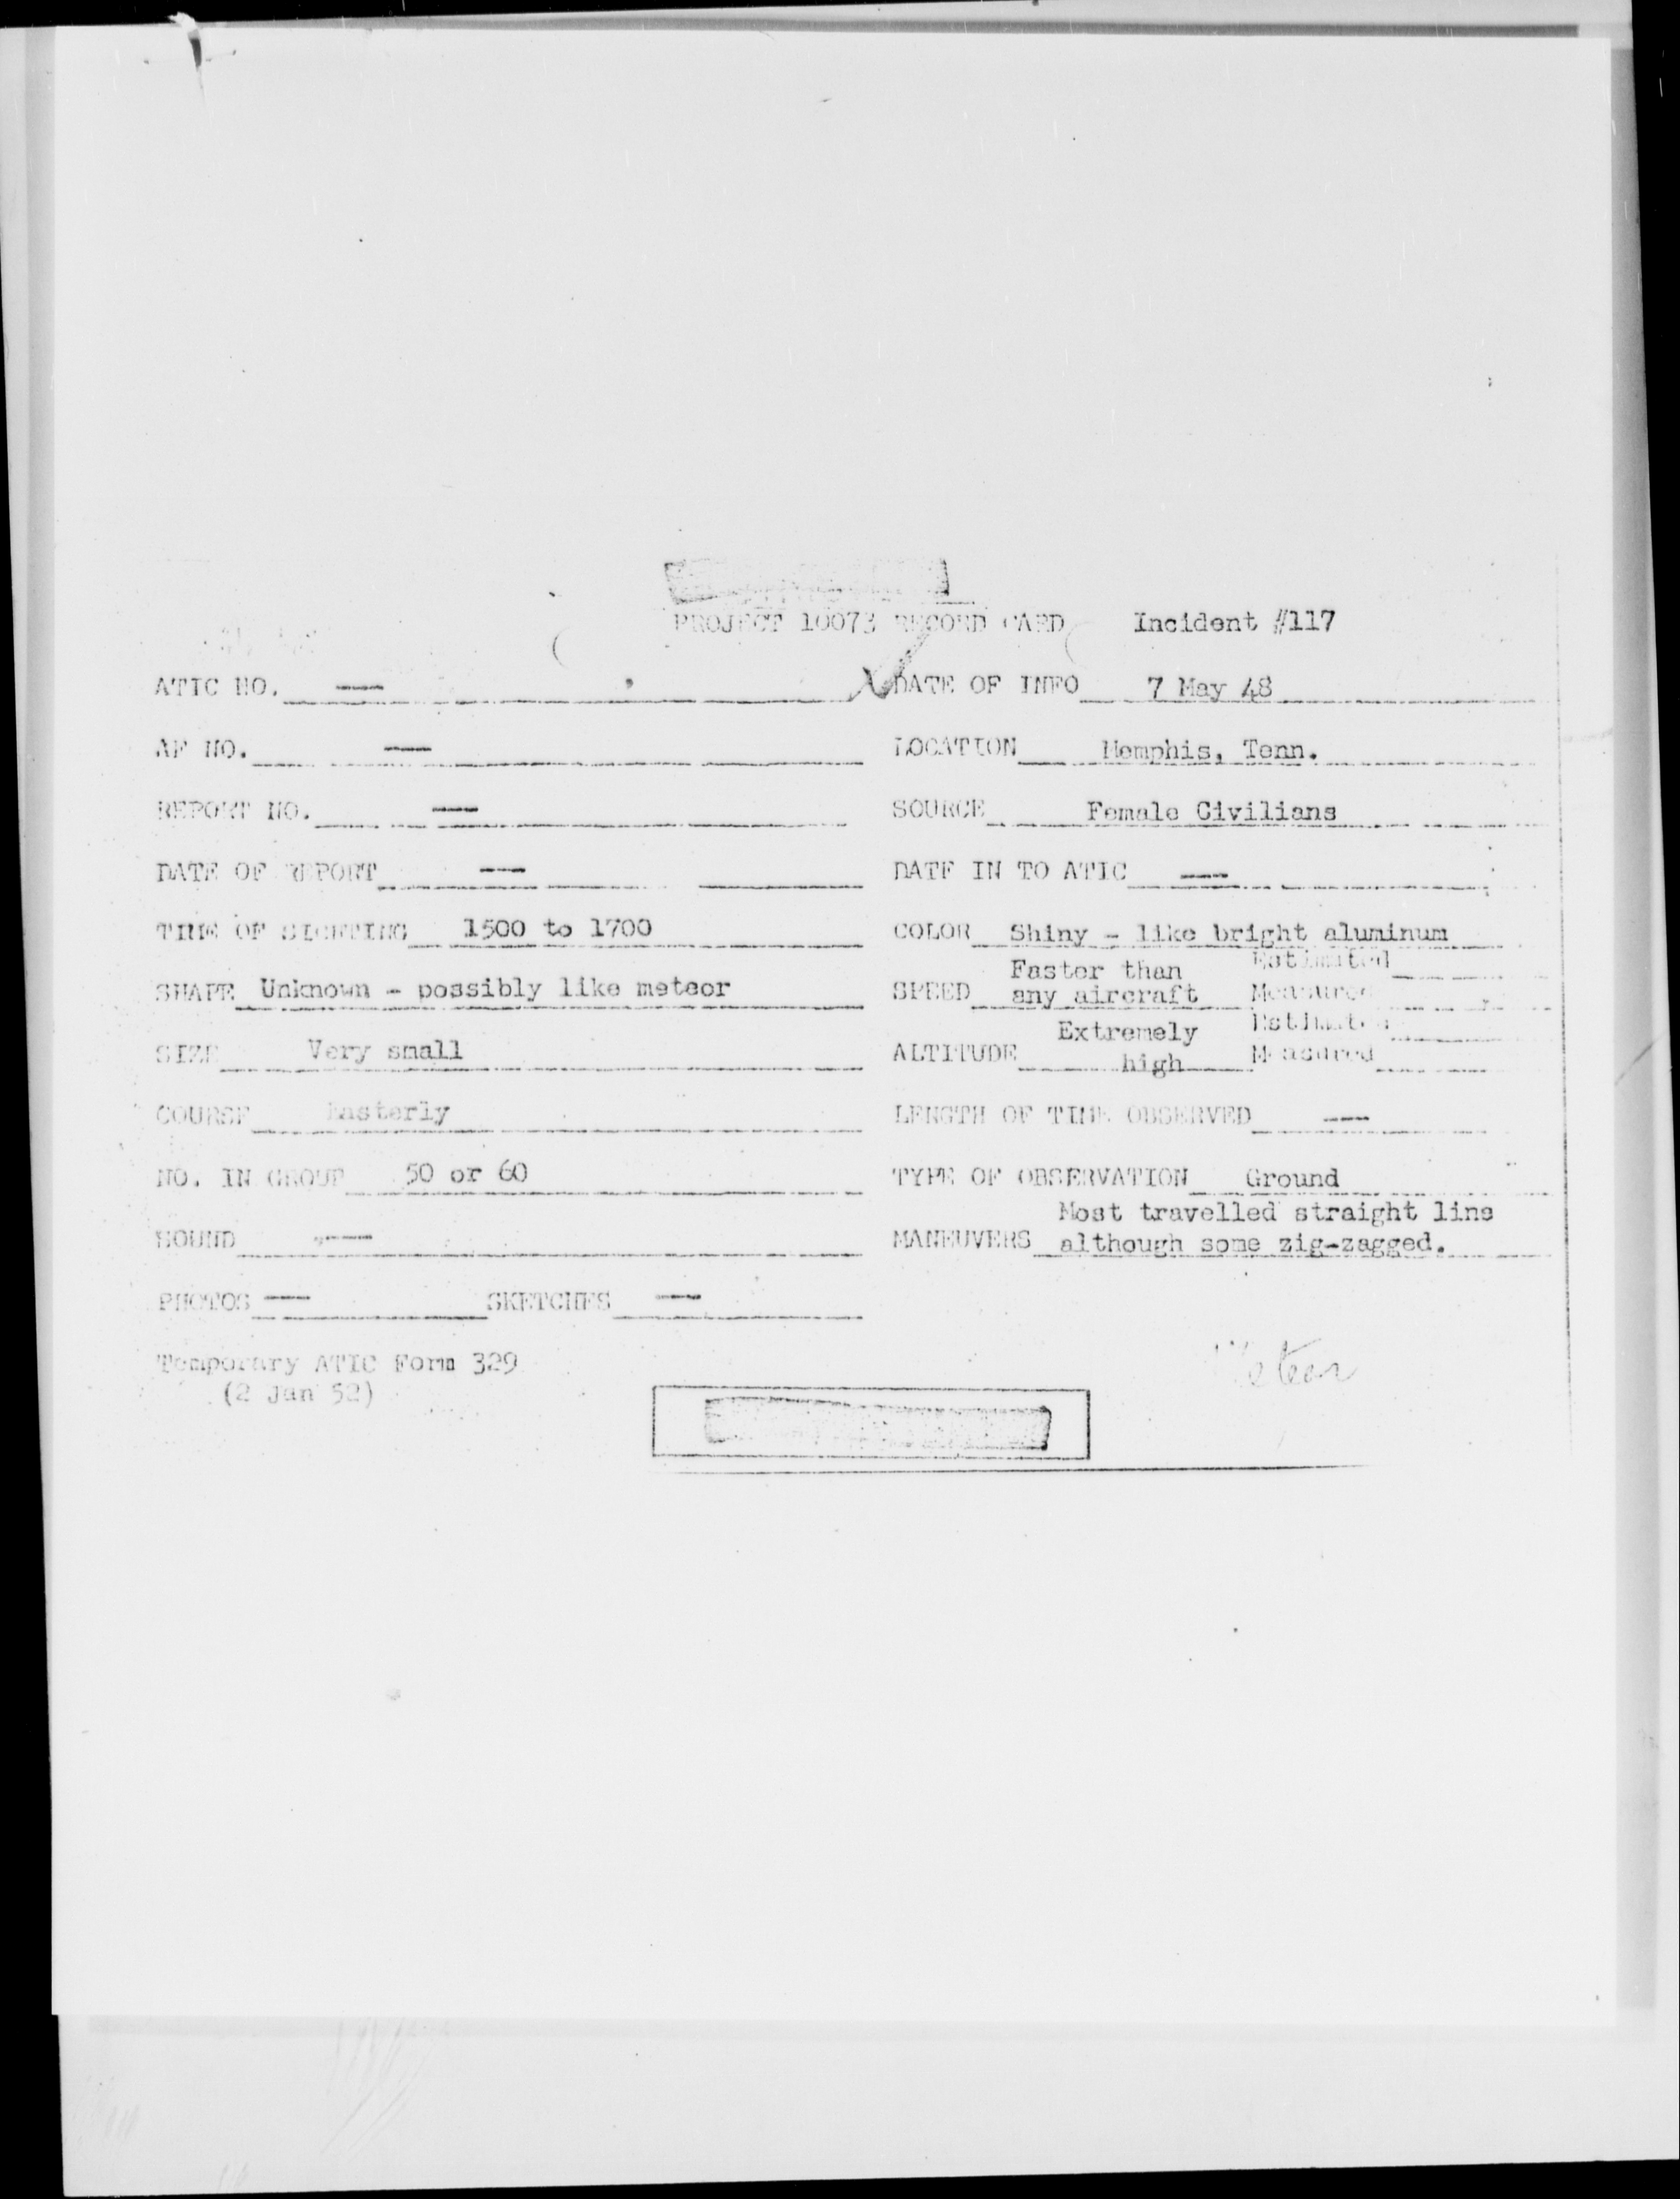 PROJECT 10073 RECORD CARD Incident #117
ATIC NO. — DATE OF INFO 7 May 48
AF NO. — LOCATION Memphis, Tenn.
REPORT NO. — SOURCE Female Civilians
DATE OF REPORT — DATE IN TO ATIC —
TIME OF SIGHTING 1500 to 1700 COLOR Shiny - like bright aluminum
SHAPE Unknown - possibly like meteor SPEED Faster than any aircraft Estimited Measured
SIZE Very small ALTITUDE Extremely high Estimated Measured
COURSE Easterly LENGTH OF TIME OBSERVED —
NO. IN GROUP 50 or 60 TYPE OF OBSERVATION Ground
SOUND — MANEUVERS Most travelled straight line
although some zig-zagged.
PHOTOS — SKETCHES —
Temporary ATIC Form 329
(2 Jan 52)